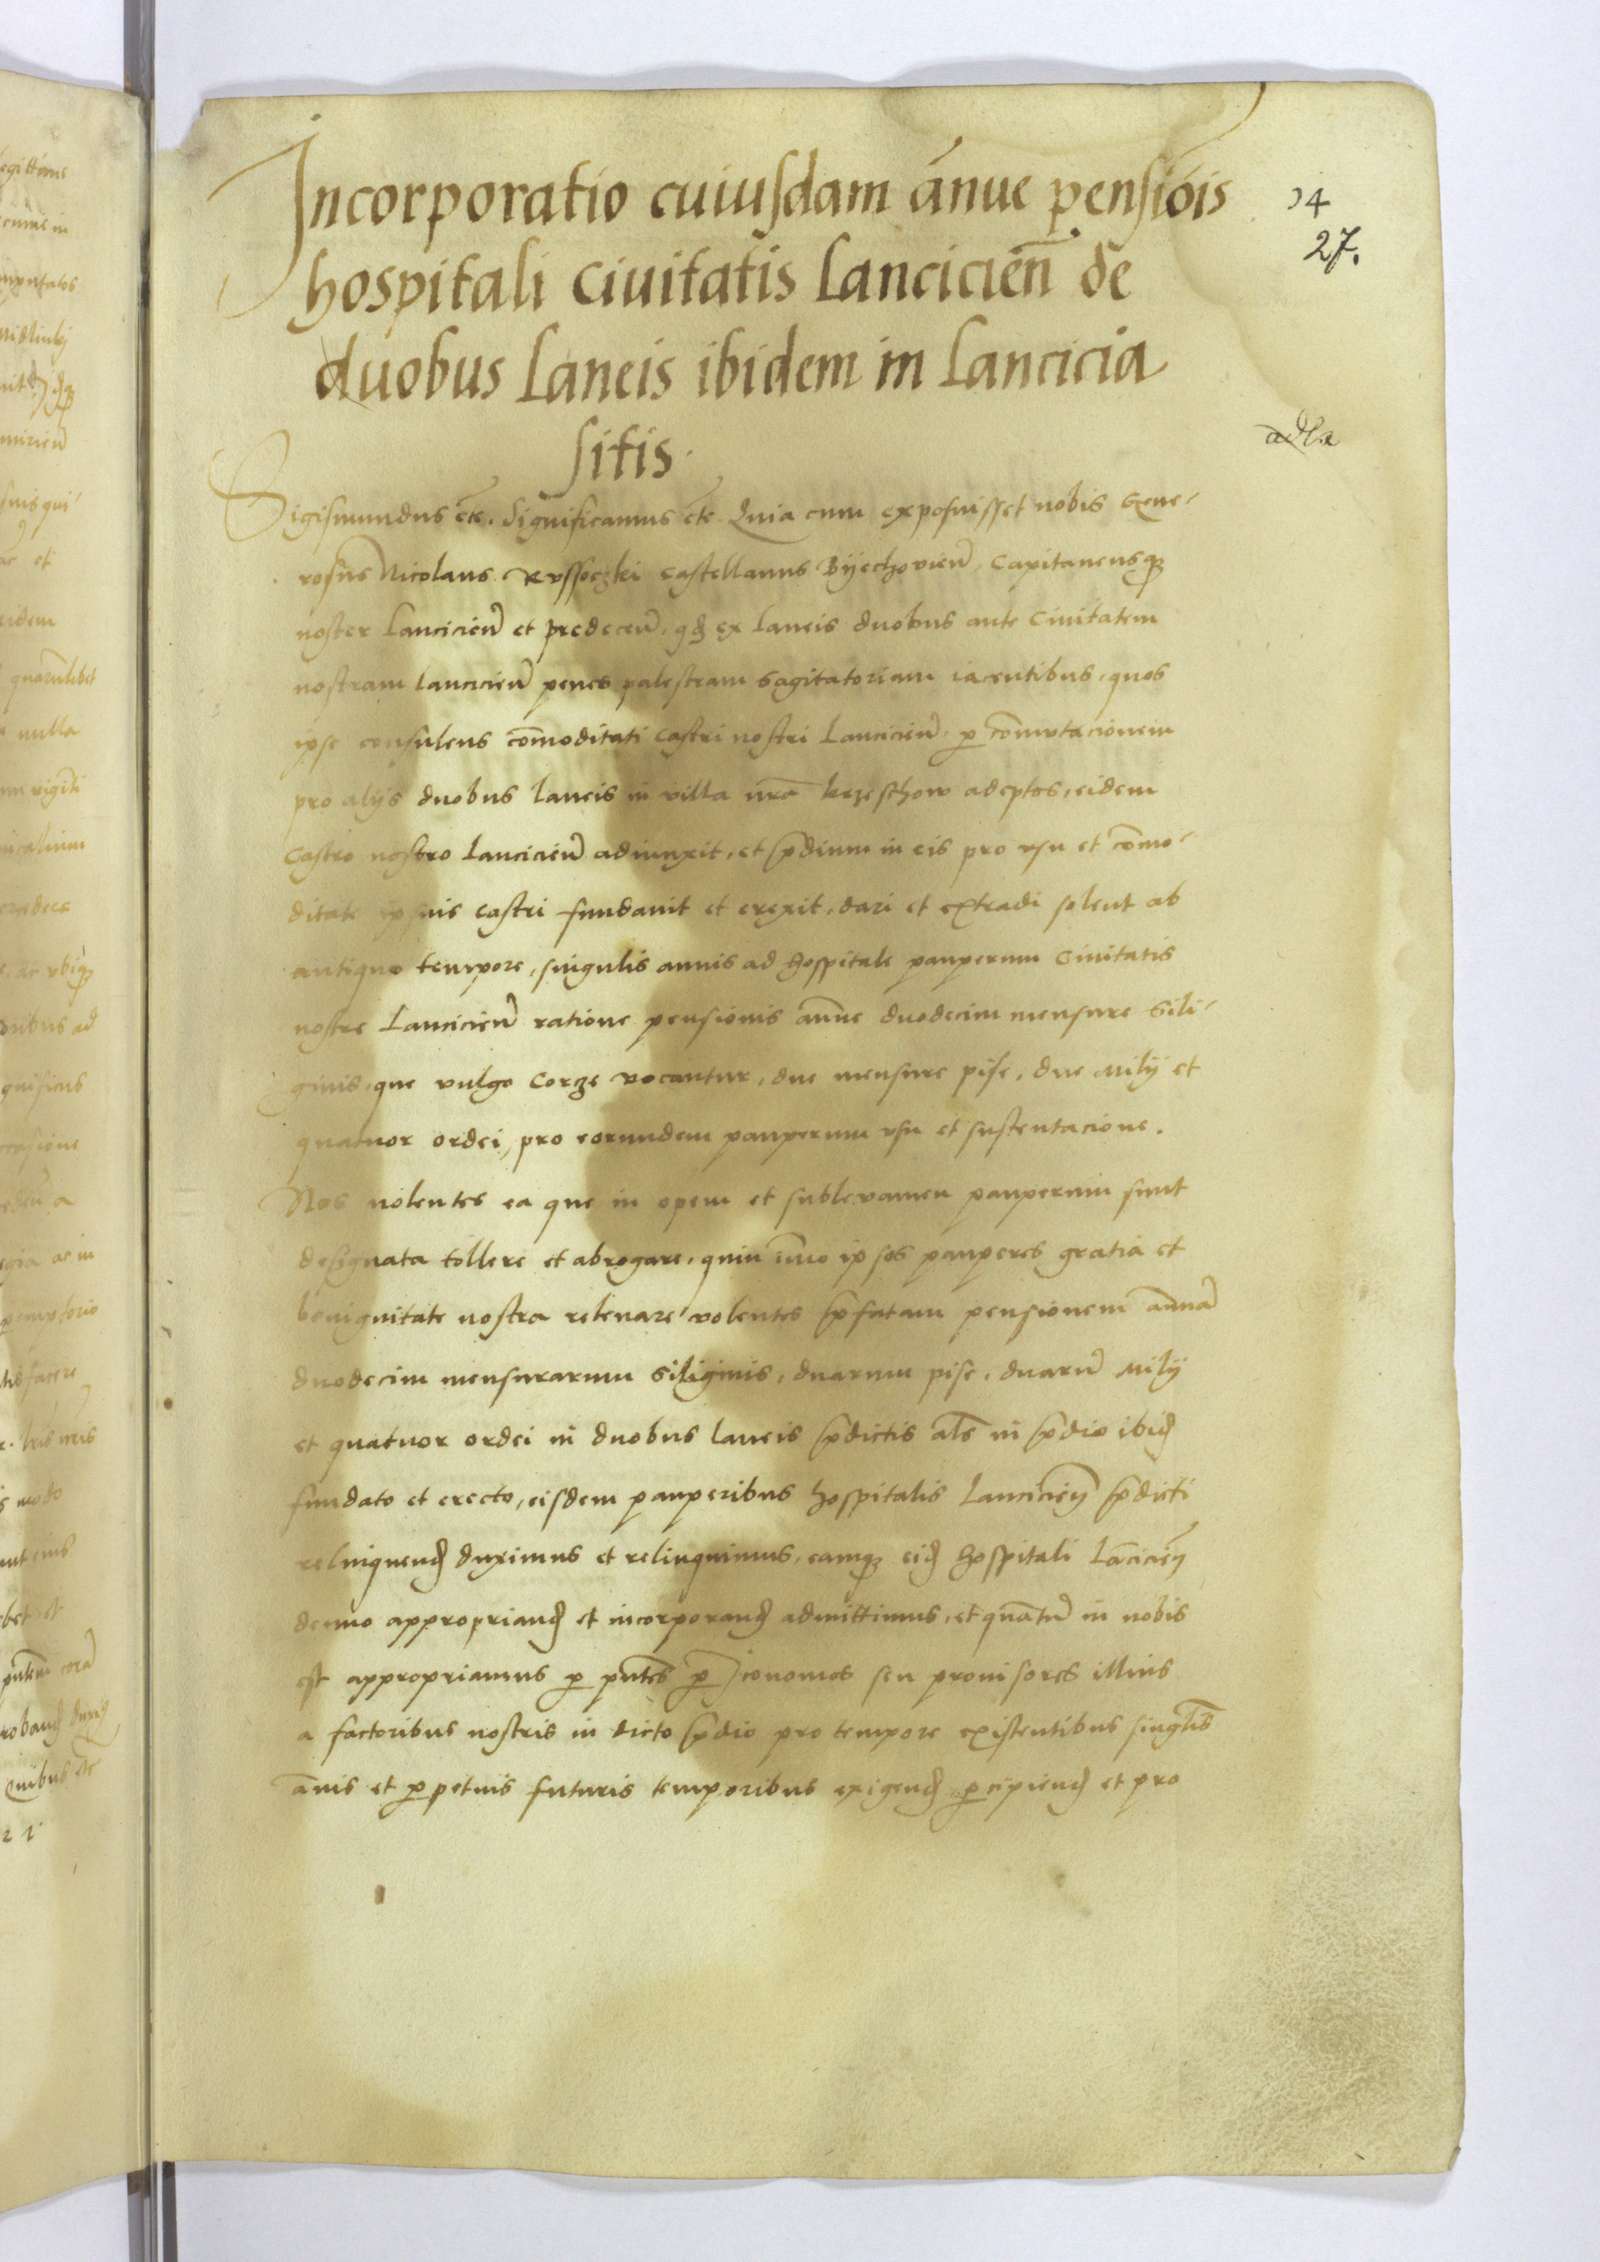 Incorporatio cuiusdam ãnue pensiõis
hospitali Ciuitatis Lancicieñ de
duobus Laneis ibidem in Lancicia
sitis.
14
27.
Sigismundus etc. Significamus etc Quia cum exposuisset nobis Gene-
rosus Nicolaus Russoczki Castellanus Byechouieñ, Capitaneusqʒ
noster Lancicieñ et predeceñ, qđ ex Laneis duobus ante Ciuitatem
nostram Lancicieñ penes palestram sagitatoriam iacentibus, quos
ipse consulens cõmoditati Castri nostri Lancicieñ, ꝑ cõmutacionem
pro alijs duobus laneis in villa nrã adeptos, eidem
Castro nostro Lancicieñ adiunxit, et p̃dium in eis pro vsu et cõmo-
ditate ipsius castri fundauit et erexit, dari et extradi solent ab
antiquo tempore, singulis annis ad hospitale pauperum Ciuitatis
nostre Lancicieñ ratione pensionis ãnue duodecim mensure Sili-
ginis, que vulgo Corze vocantur, due mensure pise, due Milij et
quatuor ordei, pro eorundem pauperum vsu et sustentacione.
Nos nolentes ea que in opem et subleuamen pauperum sunt
designata tollere et abrogare, quin ĩmo ipsos pauperes gratia et
benignitate nostra releuare volentes p̃fatam pensionem ãnuã
duodecim mensurarum Siliginis, duarum pise, duarũ Milij
et quatuor ordei in duobus laneis p̃dictis als in p̃dio ibid
fundato et erecto, eisdem pauperibus hospitalis Lancicieñ p̃dicti
relinquend duximus et relinquimus, eamqʒ eid hospitali Lãcicieñ
denuo appropriand et incorporand admittimus, et quantũ in nobis
est appropriamus ꝑ pñtes ꝑ Iconomos seu prouisores illius
a factoribus nostris in dicto p̃dio pro tempore existentibus singlis
ãnis et ꝑpetuis futuris temporibus exigend ꝑcipiend et pro